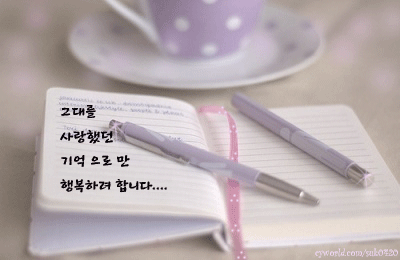 그대를
사랑했던
기억 으로 만
행복하려 합니다....
cyworld.com/suk0420